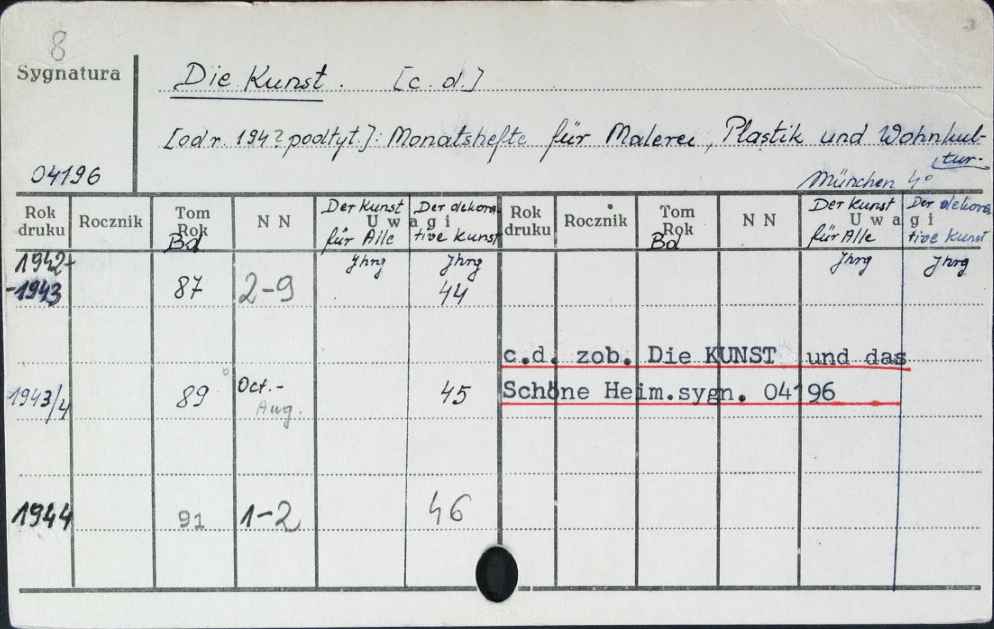 8
Sygnatura
Die Kunst. [c. d.]
[od r. 1942 podtyt.]: Monatshefte für Malerei, Plastik und Wohnkul-
tur.-
04196
München 4°
Rok druku Rocznik Tom Rok Bd N N Uwagi Der Kunst für Alle Der dekora tive Kunst Rok druku Rocznik Tom Rok Bd N N Uwagi Der Kunst für Alle Der dekora tive Kunst
Jhrg Jhrg Jhrg Jhrg
1942-
-1943 87 2-9 44
c.d. zob. Die KUNST und das
1943/4 89 Oct.- Aug. 45 Schöne Heim.sygn. 04196
1944 91 1-2 46